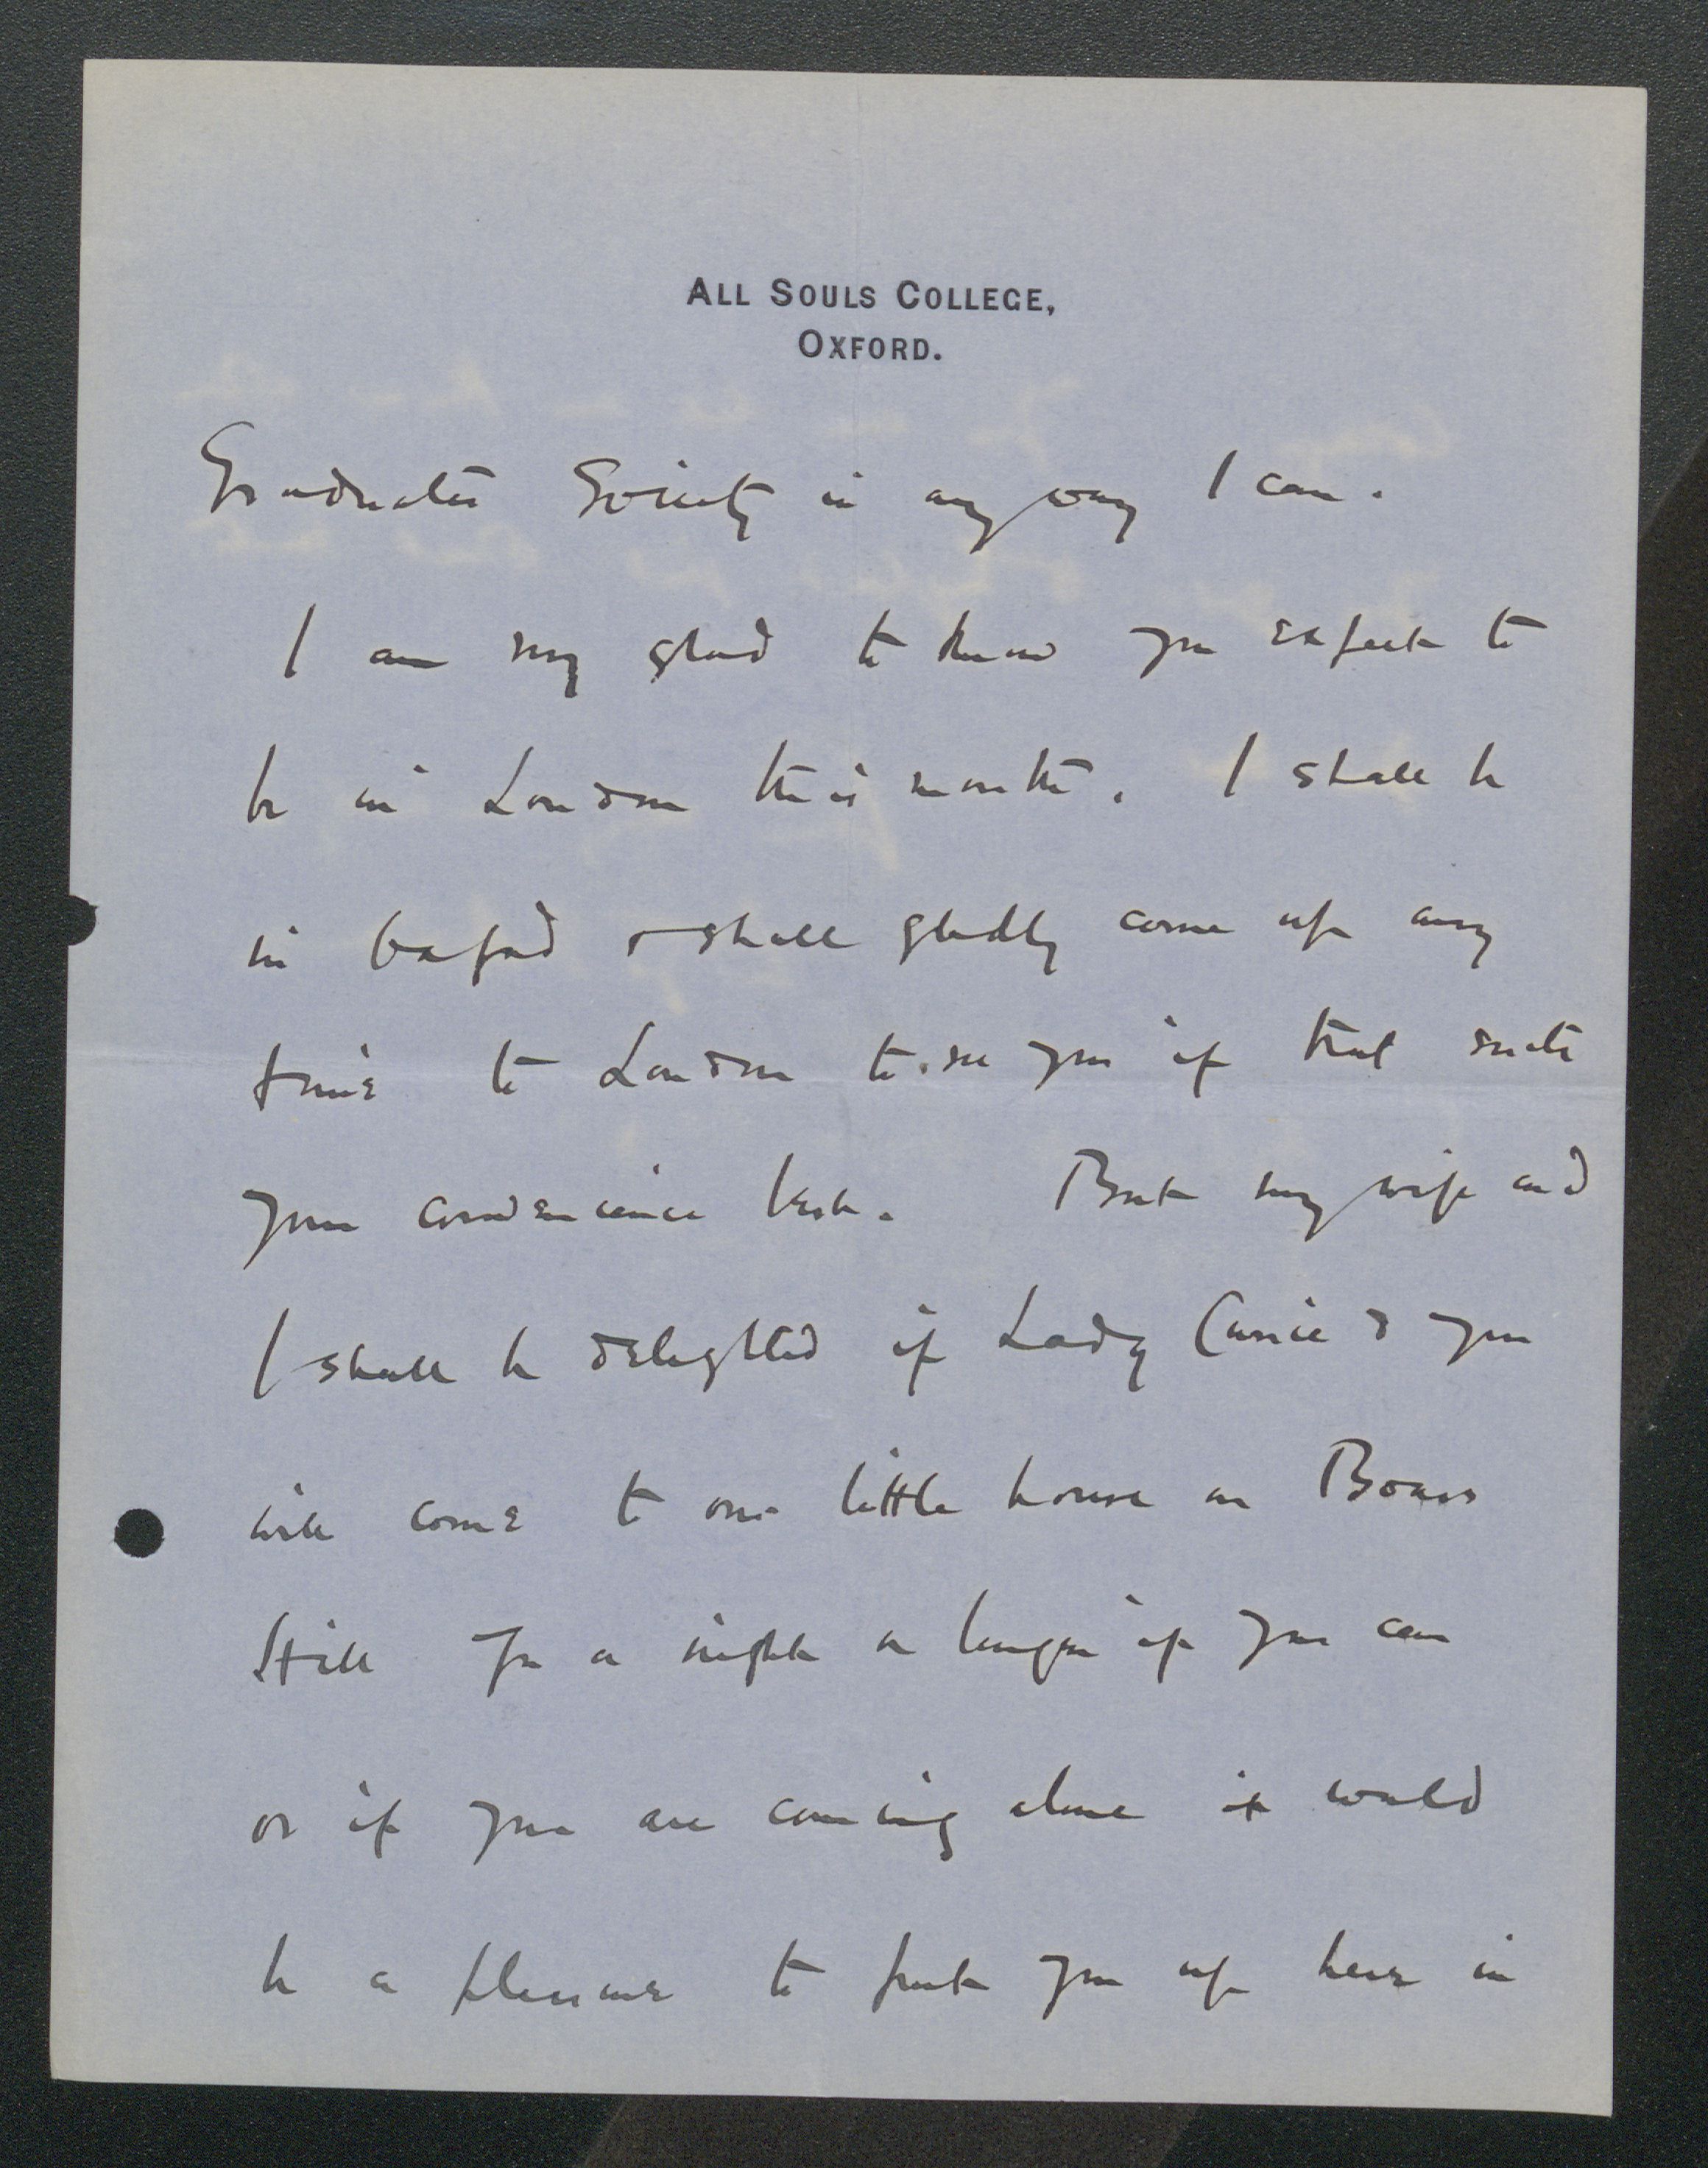 ALL SOULS COLLEGE,
OXFORD.
Graduates Society in any way I can.
I am very glad to know you expect to
be in London this month. I shall be
in Oxford & shall gladly come up any
time to London to see you if that suits
your convenience best. But my wife and
I shall be delighted if Lady Currie & you
will come to our little house on Boars
Hill for a night or longer if you can
or if you are coming alone it would
be a pleasure to put you up here in